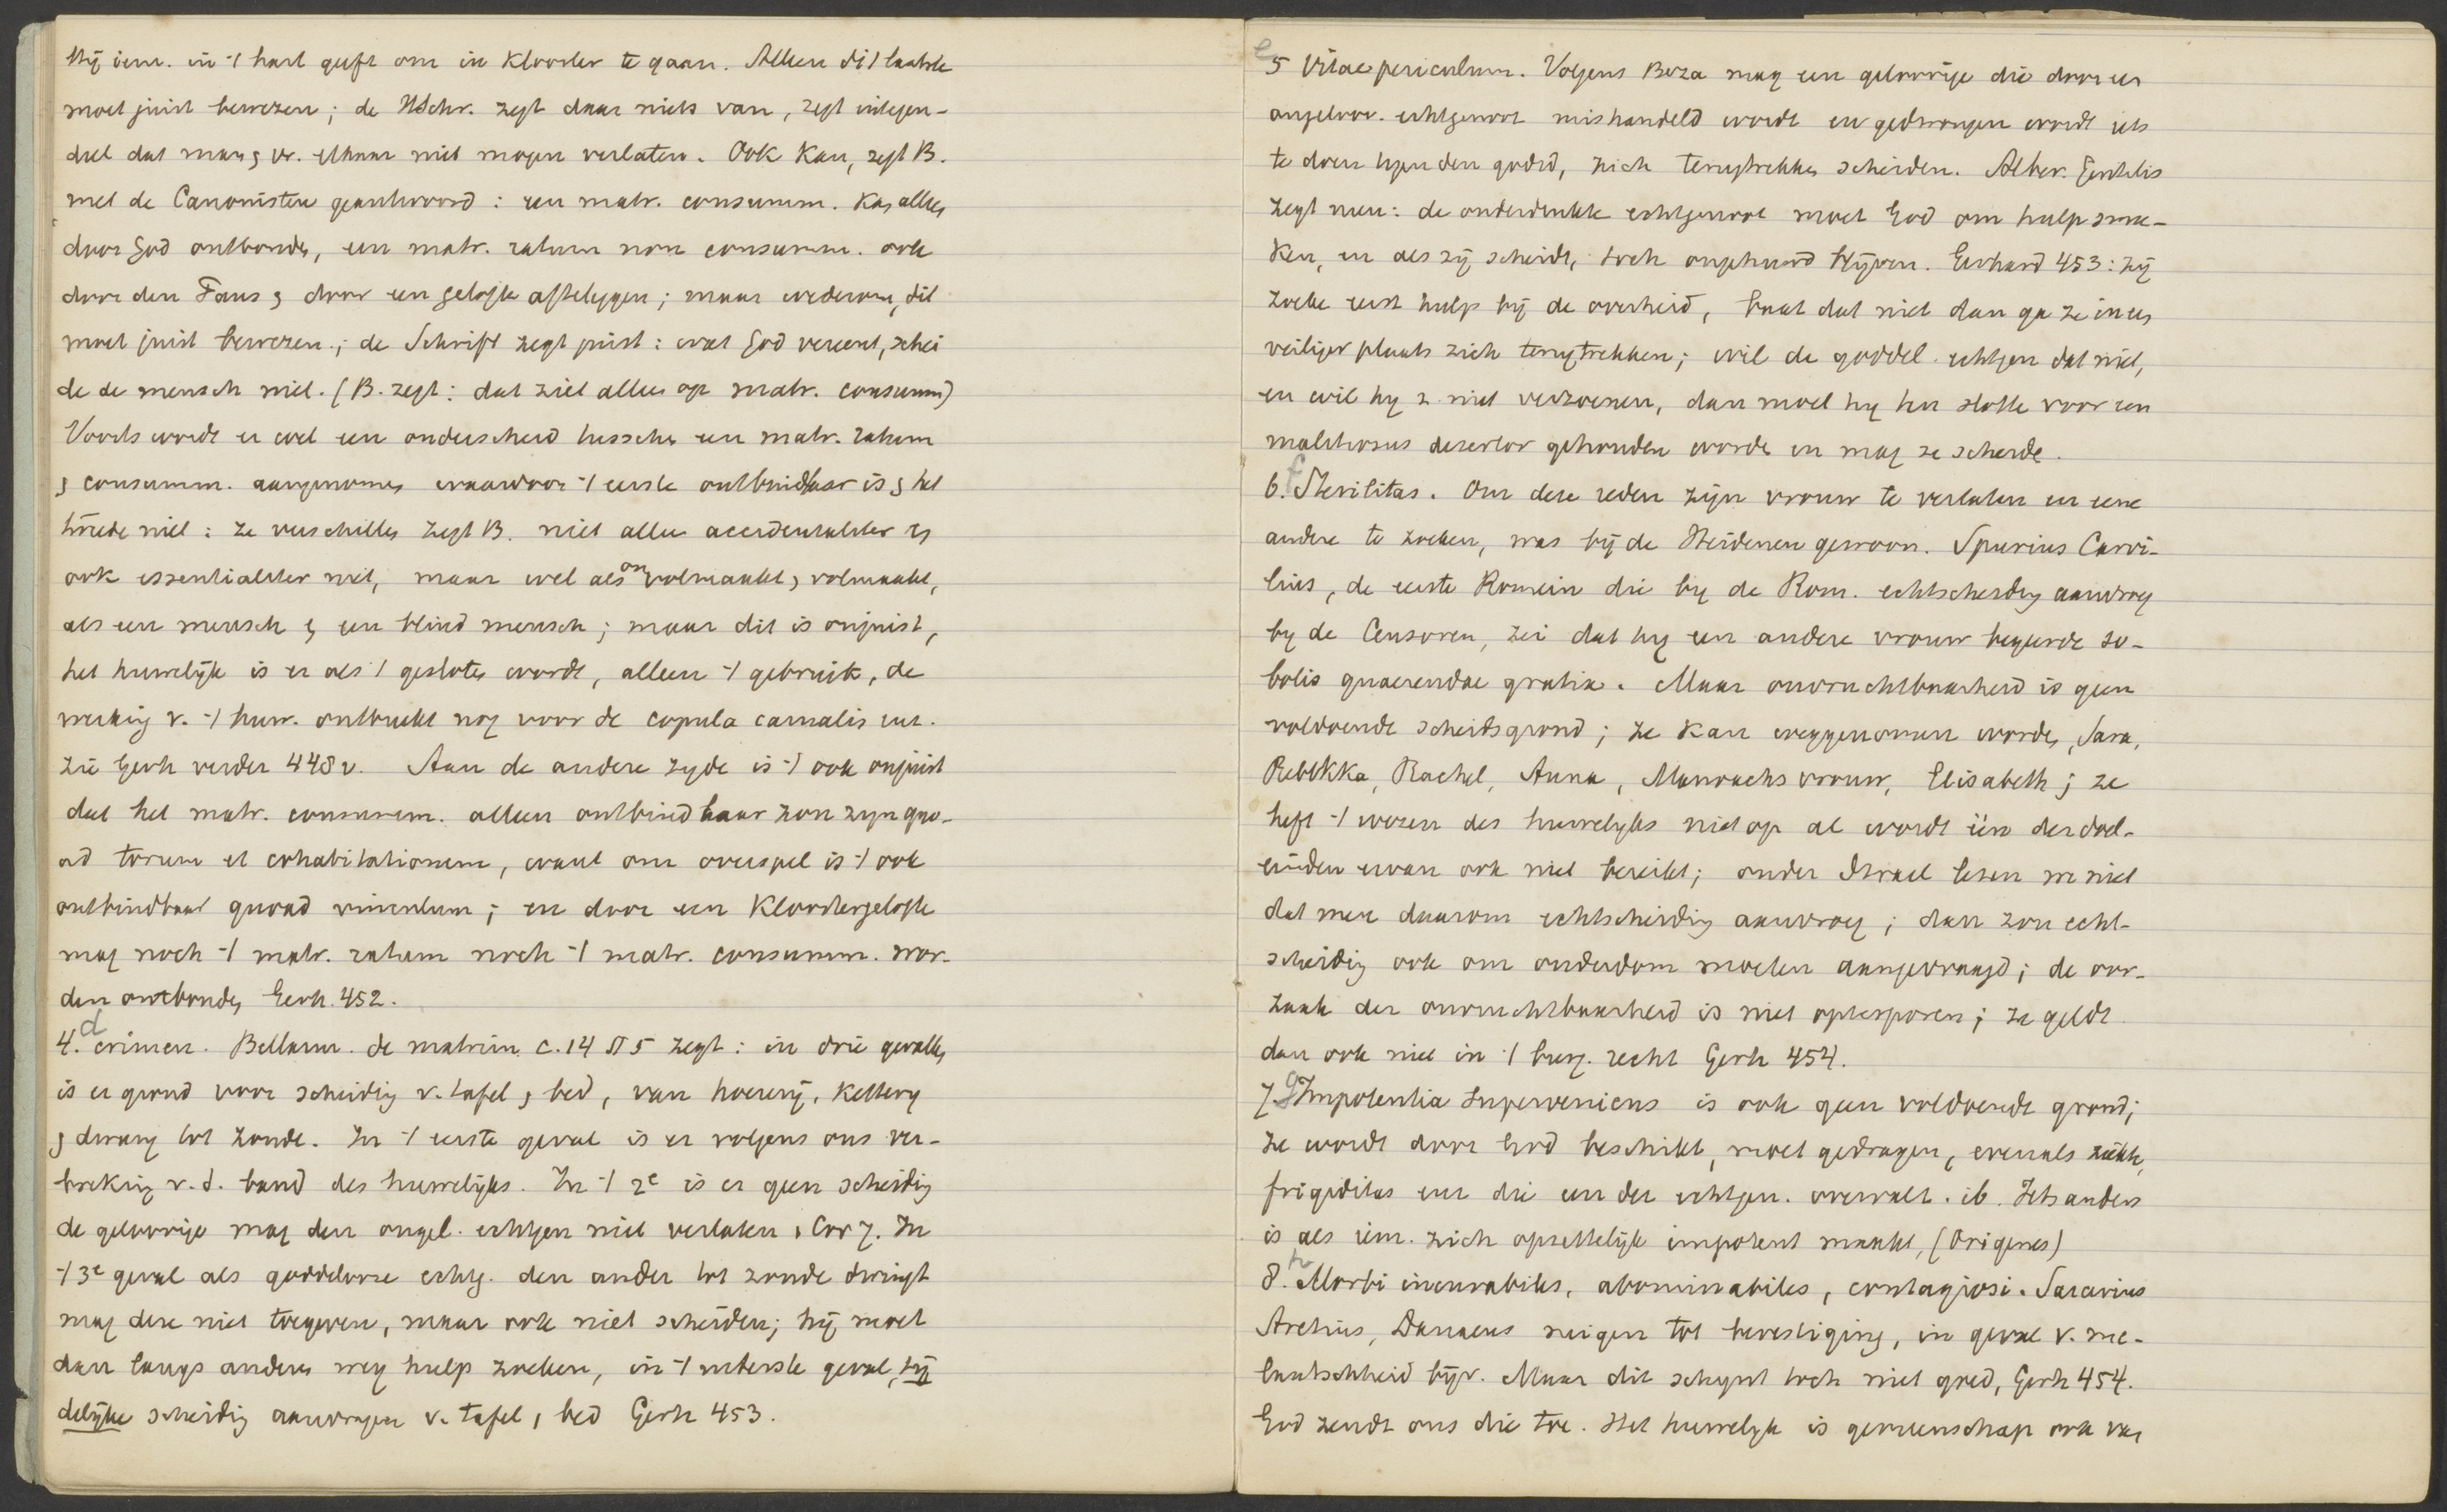 Hij iem. in 't hart geeft om in Klooster te gaan. Alleen dit laatste
moet juist bewezen; de HSchr. zegt daar niets van, zegt integen-
deel dat man & vr. elkaar niet mogen verlaten. Ook kan, zegt B.
met de Canonisten geantwoord: een matr. consumm. kan alleen
door God ontbonden, een matr. ratum non consumm. ook
door den Paus & door een gelofte afteleggen; maar wederom, dit
moet juist bewezen; de Schrift zegt juist: wat God vereent, schei
de de mensch niet. (B. zegt: dat ziet alleen op matr. consumm)
Voorts wordt er wel een onderscheid tusschen een matr. ratum
& consumm. aangenomen waardoor 't eerste ontbindbaar is & het
tweede niet: ze verschillen zegt B. niet alleen accidentaliter en
ook essentialiter niet, maar wel als onvolmaakt & volmaakt,
als een mensch & een blind mensch; maar dit is onjuist,
het huwelijk is er als 't gesloten wordt, alleen 't gebruik, de
werking v. 't huw. ontbreekt nog voor de copula carnalis enz.
Zie Gerh verder 448v. Aan de andere zyde is 't ook onjuist
dat het matr. consumm. alleen ontbindbaar zou zyn quo-
ad torum et cohabitationem, want om overspel is 't ook
ontbindbaar quoad vinculum; en door een Kloostergelofte
mag noch 't matr. ratum noch 't matr. consumm. wor-
den ontbonden, Gerh. 452.
4. d crimen. Bellarm. de matrim. c. 14 § 5 zegt: in drie gevallen
is er grond voor scheiding v. tafel & bed, van hoererij, Kettery
& dwang tot zonde. In 't eerste geval is er volgens ons ver-
breking v. d. band des huwelijks. In 't 2e is er geen scheiding
de geloovige mag den ongel. echtgen niet verlaten 1 Cor 7. In
't 3e geval als goddelooze echtg. den ander tot zonde dwingt
mag deze niet toegeven, maar ook niet scheiden; hij moet
dan langs anderen weg hulp zoeken, in 't uiterste geval, tij
delijke scheiding aanvragen v. tafel & bed Gerh 453.
5 e Vitae periculum. Volgens Beza mag een geloovige die door een
ongeloov. echtgenoot mishandeld wordt en gedwongen wordt iets
te doen tegen den godsd, zich terugtrekken, scheiden. Alber. Gentilis
zegt neen: de onderdrukte echtgenoot moet God om hulp sme-
ken, en als zij scheidt, toch ongehuwd blijven. Gerhard 453: zij
zoeke eerst hulp bij de overheid, baat dat niet dan ga ze in een
veiliger plaats zich terugtrekken; wil de goddel. echtgen dat niet,
en wil hy z. niet verzoenen, dan moet hy ten slotte voor een
malitiosus desertor gehouden worden en mag ze scheiden.
6. f Sterilitas. Om deze reden zijn vrouw te verlaten en eene
andere te zoeken, was bij de Heidenen gewoon. Spurius Carvi-
lius, de eerste Romein die by de Rom. echtscheiding aanvroeg
by de Censoren, zei dat hy een andere vrouw begeerde so-
bolis quaerendae gratia. Maar onvruchtbaarheid is geen
voldoende scheidsgrond; ze kan weggenomen worden, Sara,
Rebekka, Rachel, Anna, Manoachs vrouw, Elisabeth; ze
heft 't wezen des huwelyks niet op al wordt één der doel-
einden ervan ook niet bereikt; onder Israel lezen we niet
dat men daarom echtscheiding aanvroeg; dan zou echt-
scheiding ook om ouderdom moeten aangevraagd; de oor-
zaak der onvruchtbaarheid is niet optesporen; ze geldt
dan ook niet in 't burg. recht Gerh 454.
7. g Impotentia superveniens is ook geen voldoende grond;
ze wordt door God beschikt, moet gedragen, evenals ziekte,
frigiditas enz die een der echtgen. overvalt. ib. Iets anders
is als iem. zich opzettelijk impotent maakt, (Origenes)
8. h Morbi incurabiles, abominabiles, contagiosi. Sarcerius
Aretius, Danaeus neigen tot bevestiging, in geval v. me-
laatschheid bijv. Maar dit schynt toch niet goed, Gerh 454.
God zendt ons die toe. Het huwelyk is gemeenschap ook van